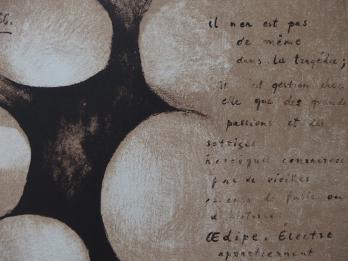 66.
il n'en est pas
de même
dans la tragédie;
est question chez
elle que des grands
passions et des
sottises
de vieilles
de fable ou
d'histoire
Œdipe, Électre
appartiennent